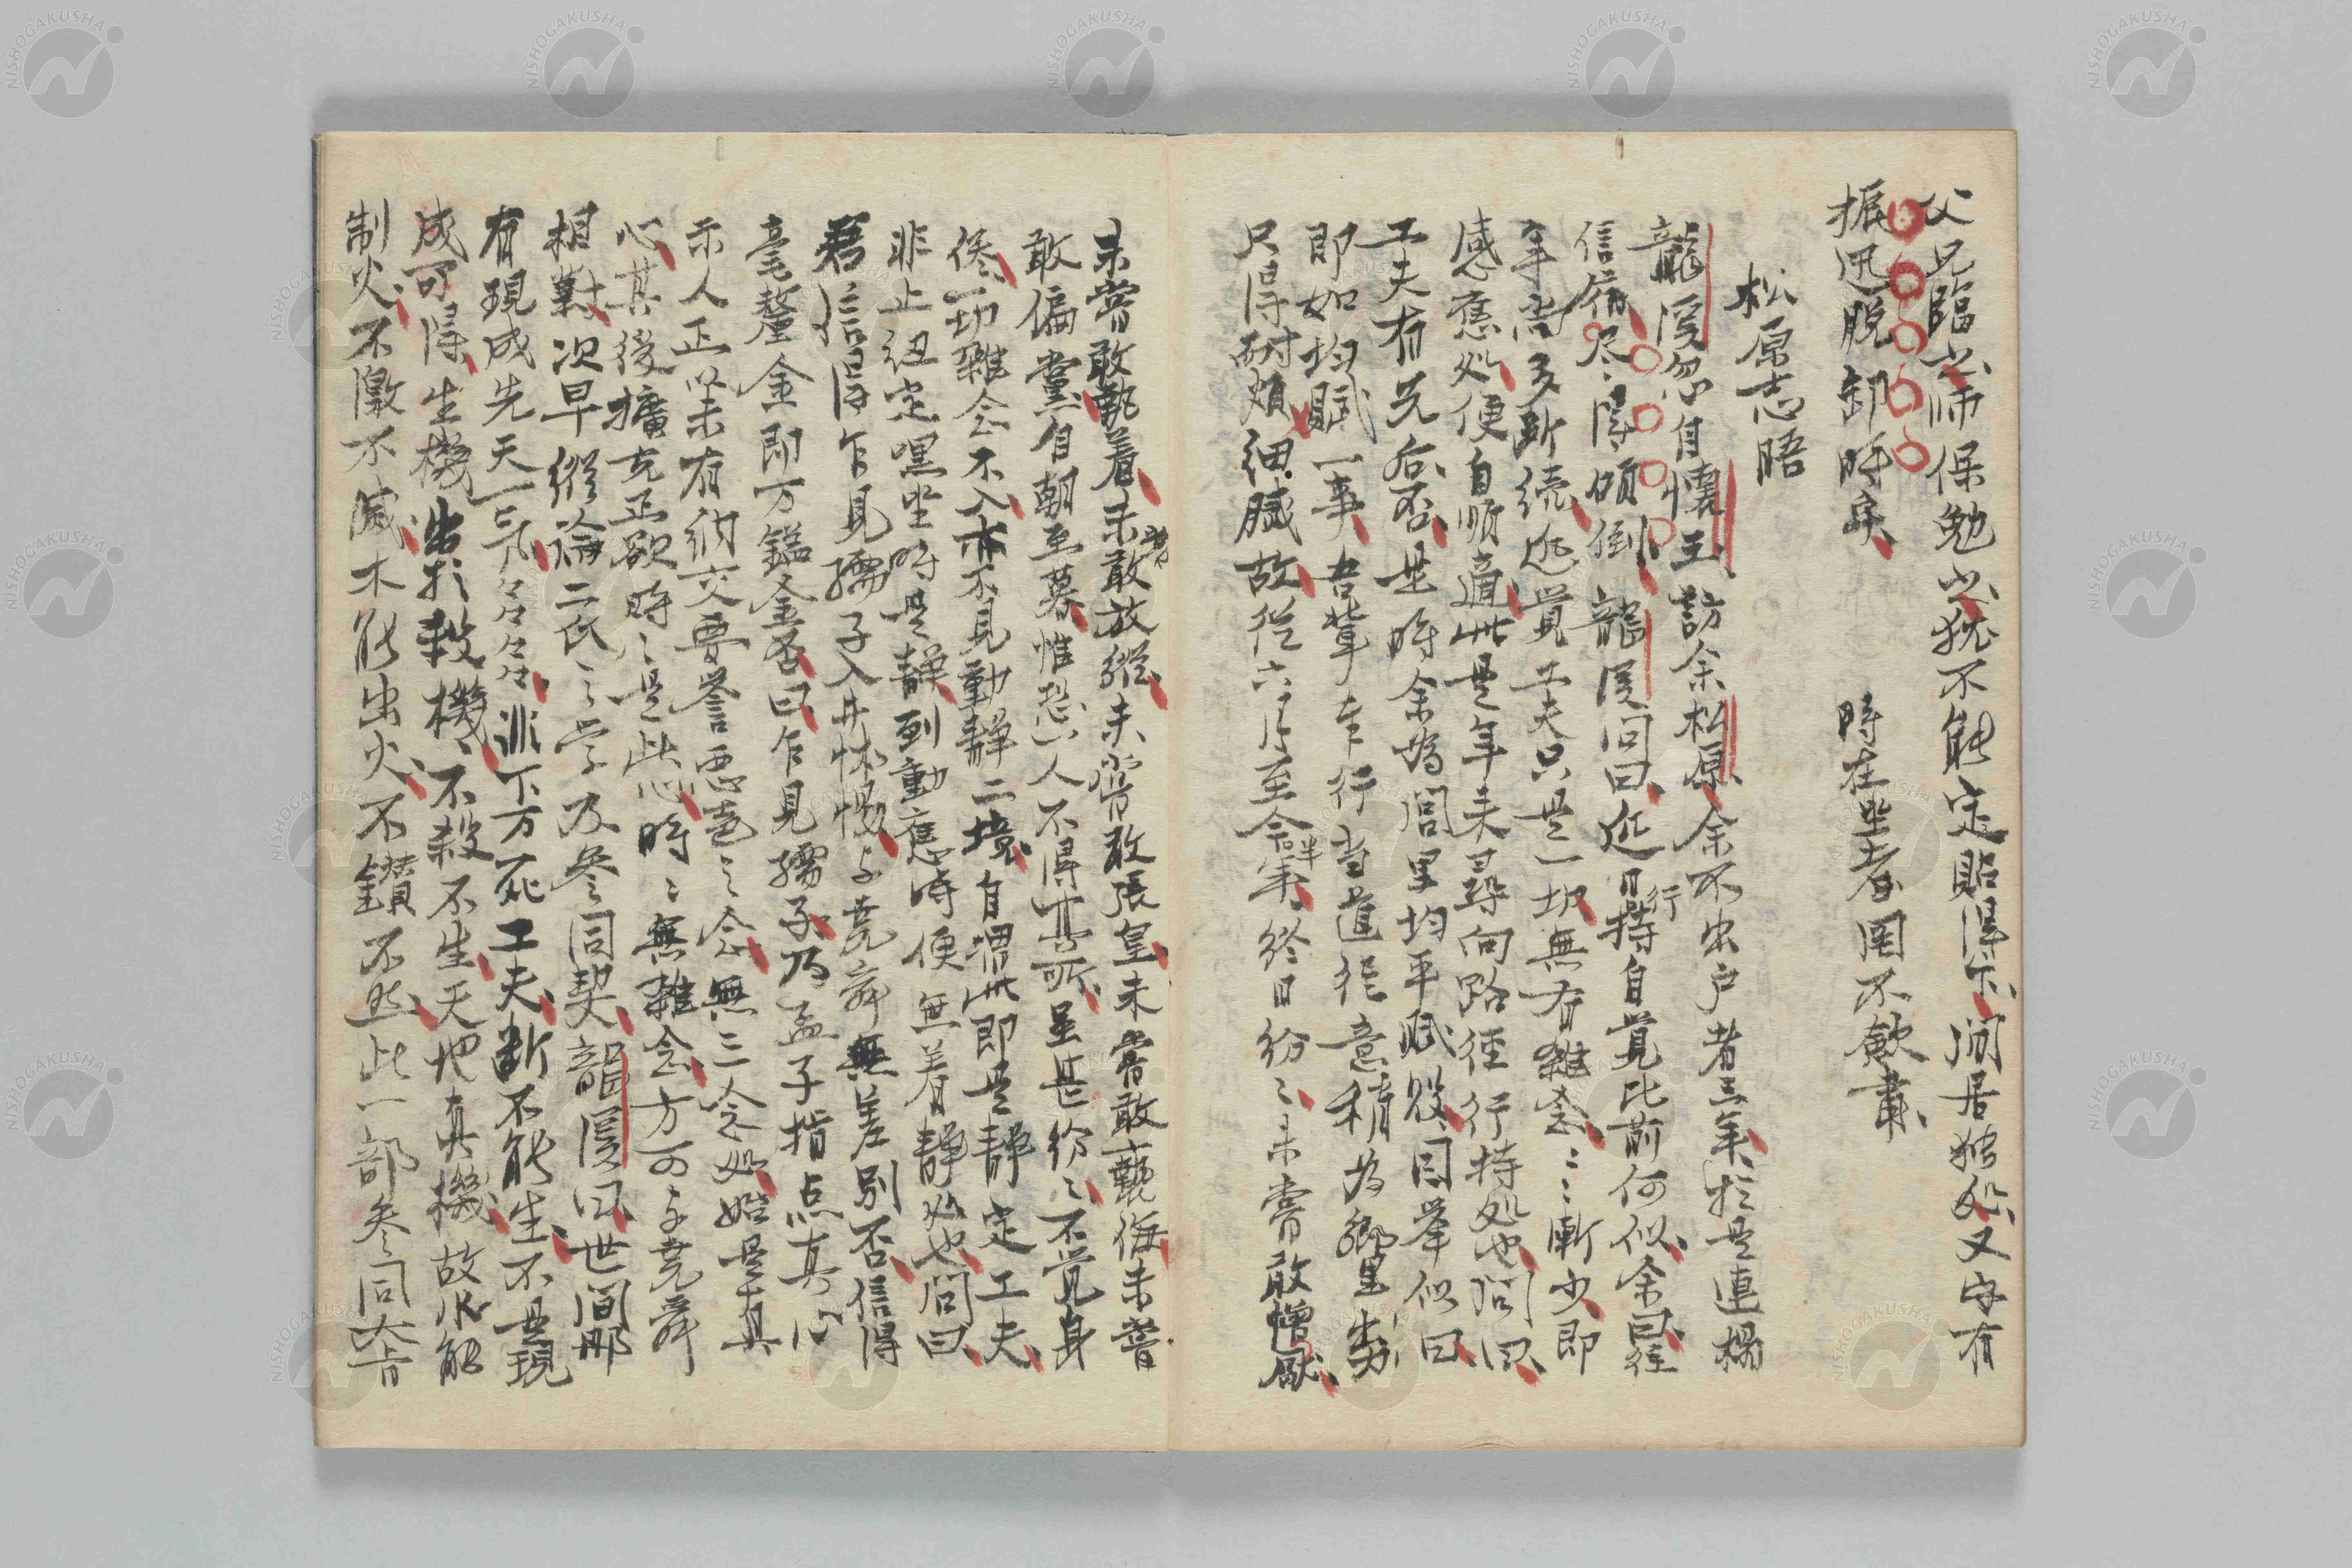 父兄臨之師保勉之猶不能定貼得下、閒居独処又安有
振迅脱卸時矣、　時在坐者罔不歛肅、
松原志晤
龍溪忽自懐玉訪余松原、余不出户者三年、於是連榻
信宿尽得傾倒、龍溪問曰、近日行持自覚比前何似、余曰、往
年尚多断続、近覚工夫只是一切無有雑念、雑念漸少、即
感應処便自順適、此是年来尋向路径行持処也、問曰、
工夫有先后否、是時余為閭里均平賦役、因挙似曰、
即如均賦一事、吾輩奉行当道徳意稍為郷里出力、
只得耐煩細膩、故従六月至今半年、終日紛々、未嘗敢憎厭、
未嘗敢執着、未嘗敢放縦、未嘗敢張皇、未嘗敢褻侮、未嘗
敢偏黨、自朝至暮、惟恐一人不得其所、虽甚紛々、不覚身
倦、一切雑念不入、亦不見動静二境、自謂此即是静定工夫、
非止紐定嘿坐時是静、到動應時便無着静処也、問曰、
君信得乍見孺子入井怵惕与堯舜無差別否、信得
毫釐金即万鎰金否、曰、乍見孺子、乃孟子指点真心
示人、正以未有納交要誉悪聲之念、無三念処、始是真
心、其後擴充正欲時々是此心、時々無雑念、方可与堯舜
相對、次早縦論二氏之学及参同契、龍溪曰、世間那
有現成先天一氣、先天一氣、非下万死工夫断不能生、不是現
成可得、生機出於殺機、不殺不生、天地真機、故水能
制火、不激不滅、木能出火、不鑽不然、此一部参同大旨